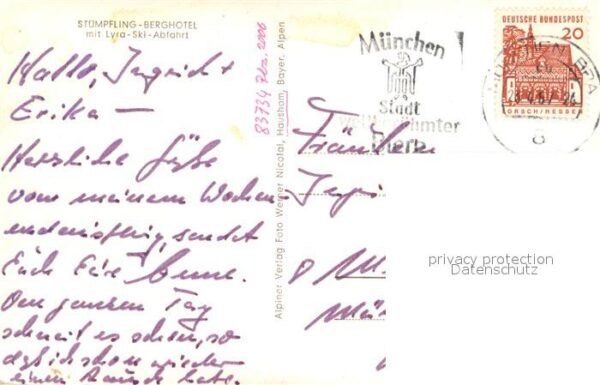 STÜMPFLING-BERGHOTEL
mit Lyra-Ski-Abfahrt
Hallo, Ingrid +
Erika —
Herzliche Grüße
vom meinem Wochen
endausflug, sendet
Euch Eure
Den ganzen Tag
schneit es schon, so
daß ich schon wieder
einen habe.
83734 Plz. 2000
Alpiner Verlag Foto Werner Nicolai, Hausham, Bayer. Alpen
München
Stadt
weltberühmter
Biere
DEUTSCHE BUNDESPOST
20
LORSCH/HESSEN
8
Fräulein
8 M
Mün
privacy protection
Datenschutz